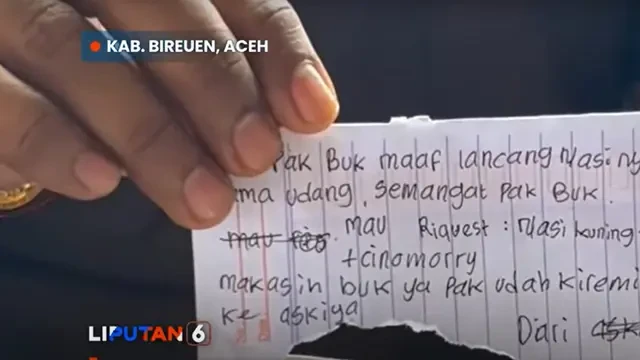 KAB. BIREUEN, ACEH
Pak Buk maaf lancang n/asi ny
ma udang, semangat Pak Buk.
mau Riquest: n/asi kuning
+cinomorry
makasin buk ya pak udah kiremi
ke askiya
Dari
LIPUTAN 6